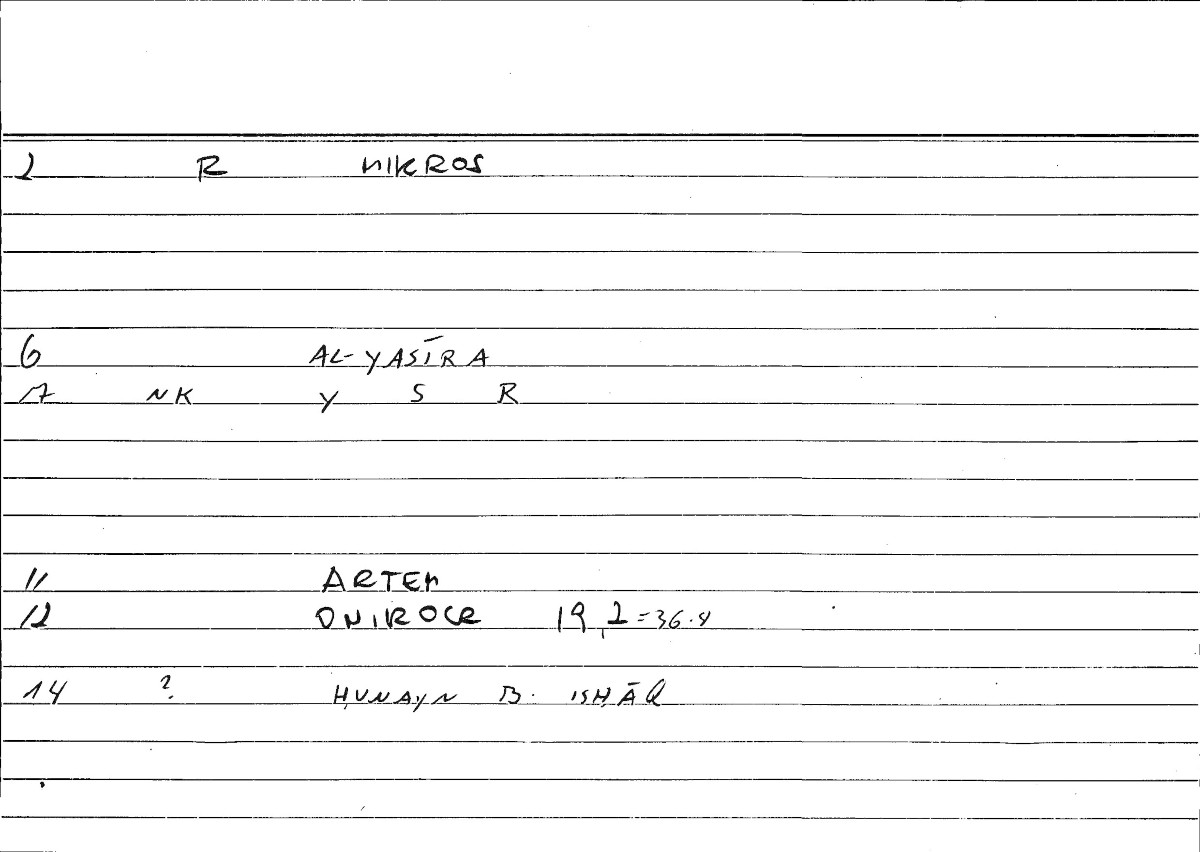 2 R MIKROS
6 AL-YASĪRA
17 NK Y S R
11 ARTEM
12 ONIROCR 19,2=36.8
14 ? ḤUNAYN B. ISḤĀQ